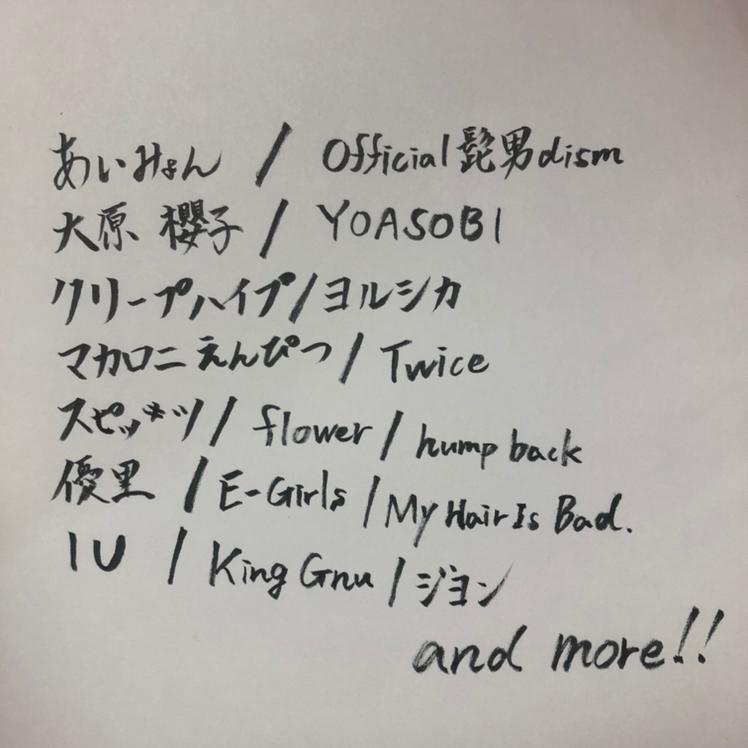 あいみょん / Official髭男dism
大原 櫻子 / YOASOBI
クリープハイプ/ヨルシカ
マカロニえんぴつ/Twice
スピッツ/flower/hump back
優里 /E-Girls/My Hair Is Bad.
IU / King Gnu/ジョン
and more!!